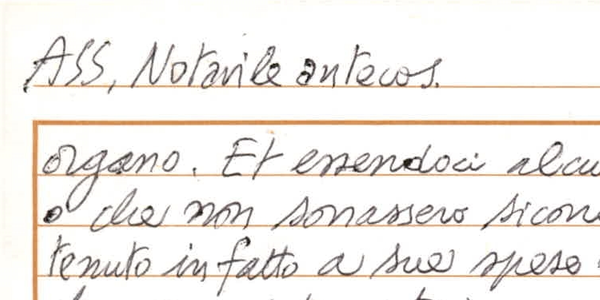 ASS, Notarile antecos.
organo. Et essendoci alcu
o che non sonassero sicone
tenuto in fatto a sue spese